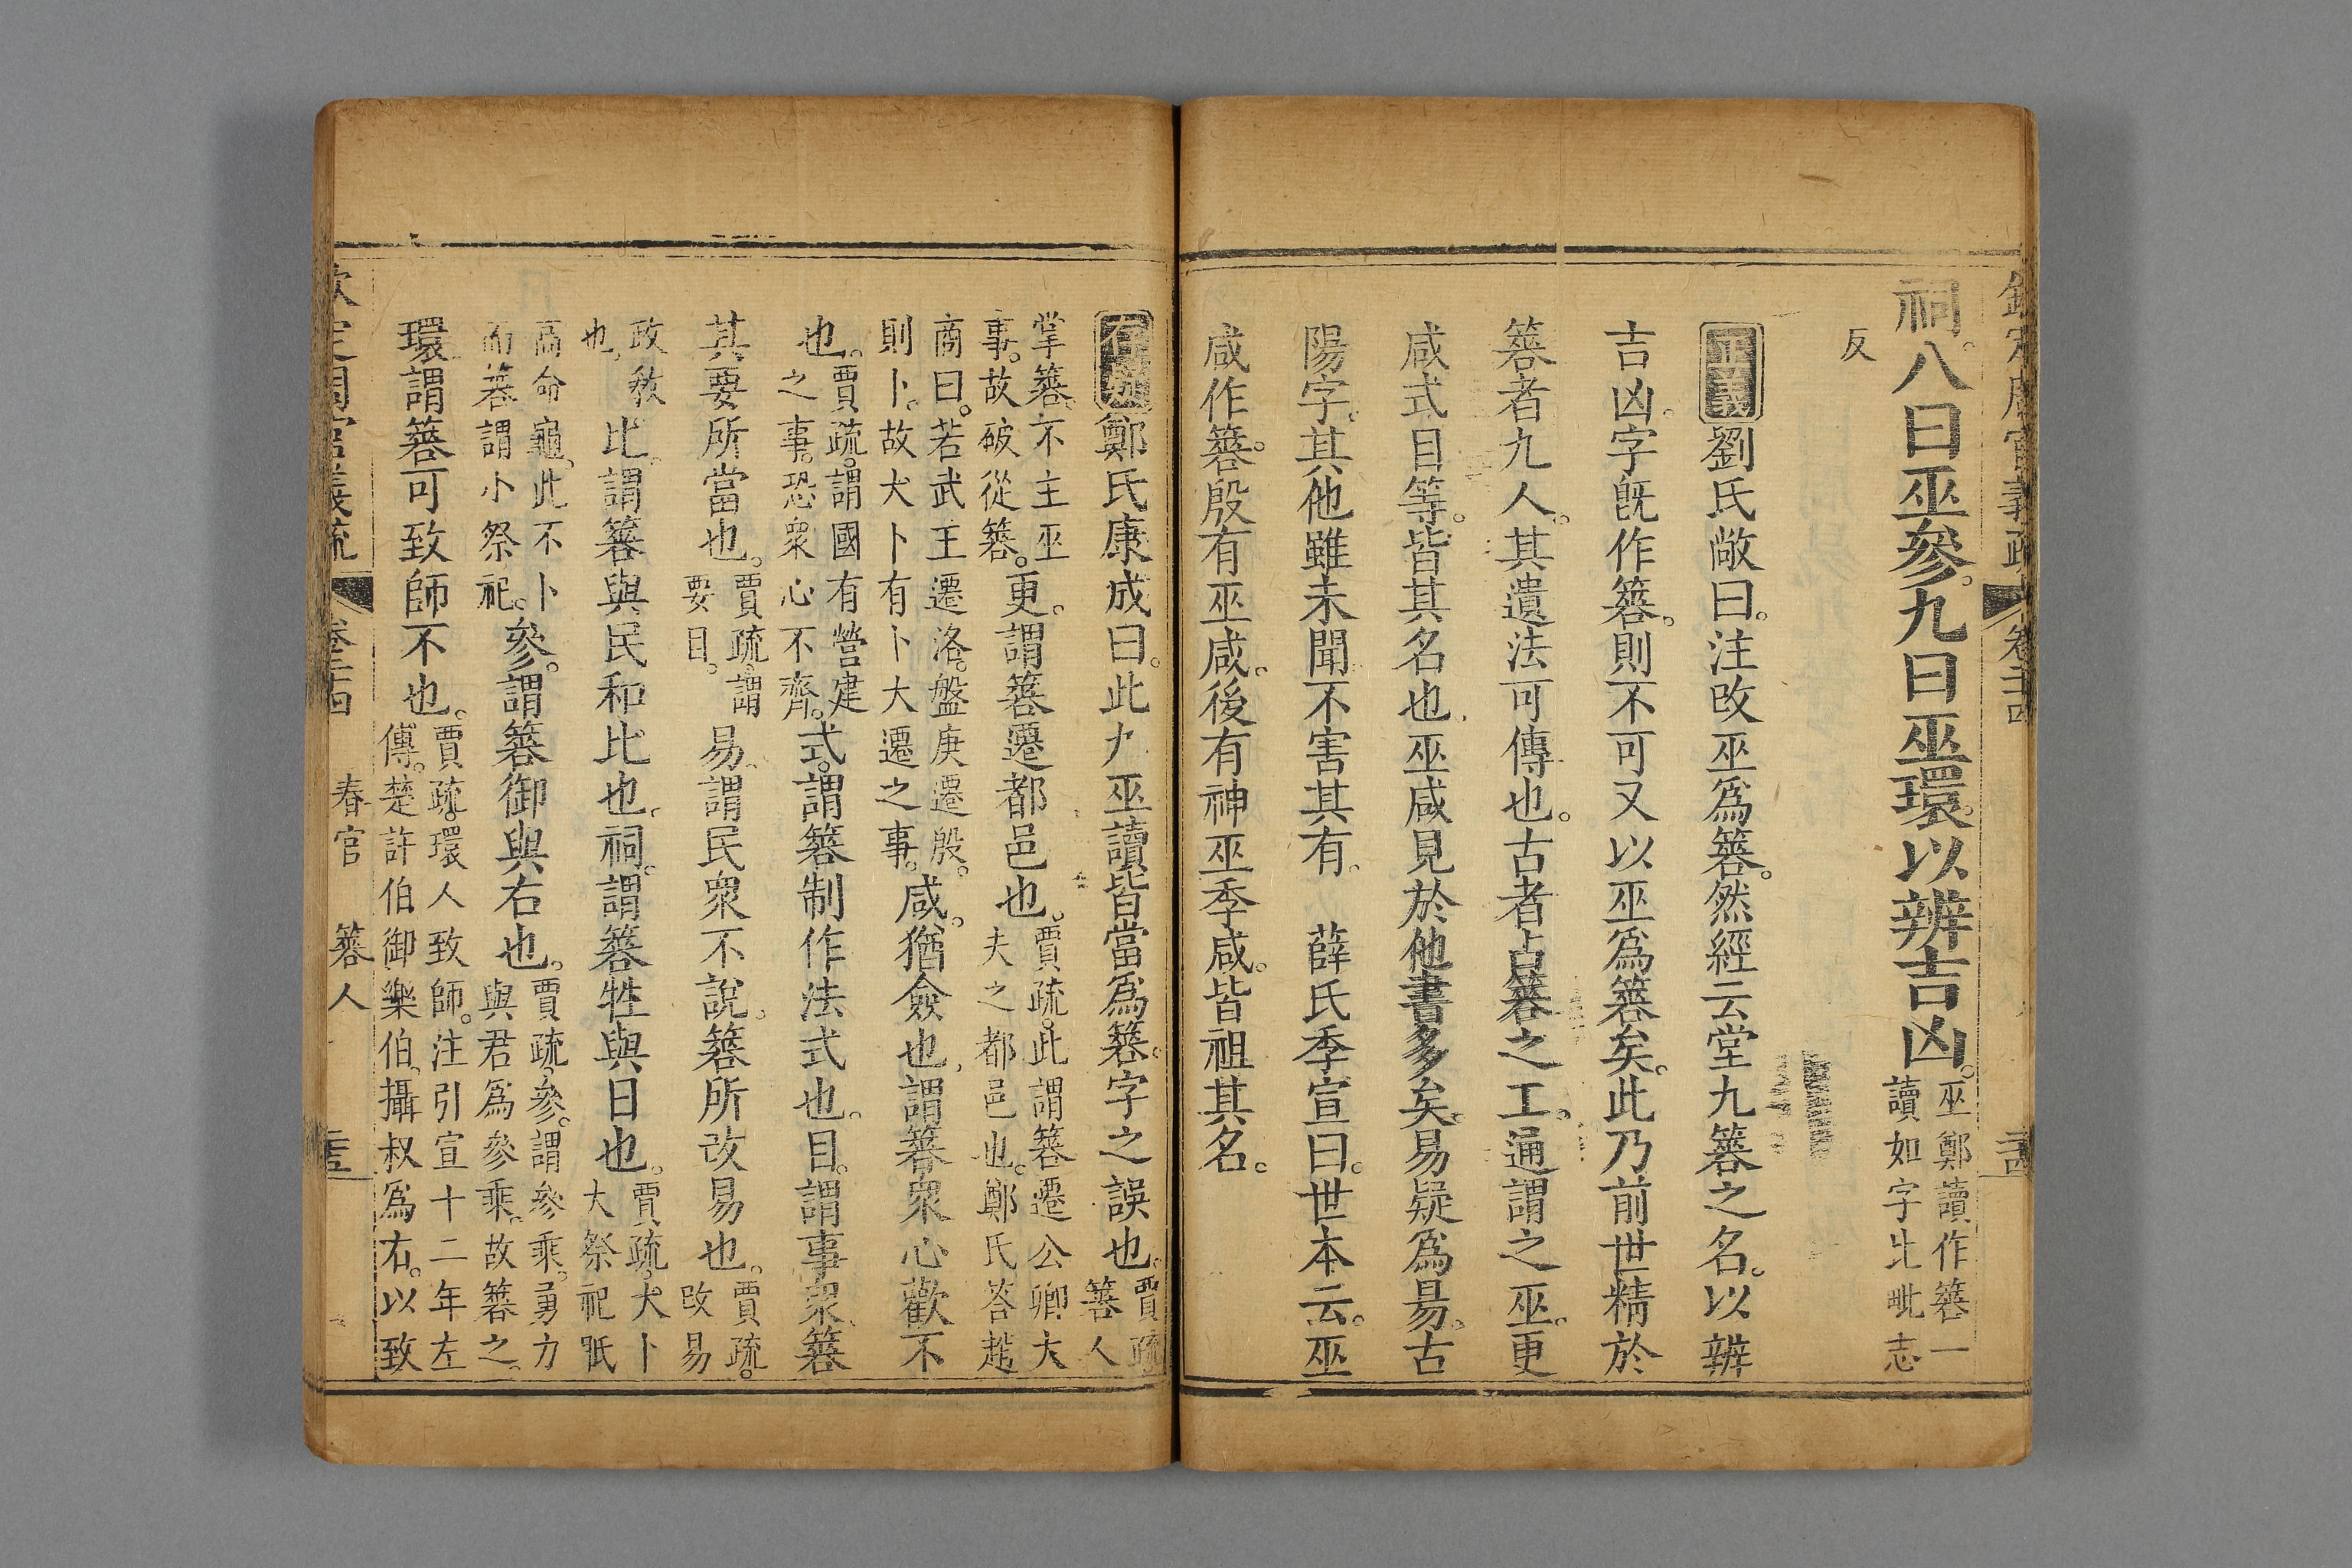 欽定周官義疏 卷二十四 二十四
祠。八曰巫參。九曰巫環。以辨吉凶。巫鄭讀作簭一
讀如字比毗志
反
正義劉氏敞曰。注改巫爲簭。然經云堂九簭之名。以辨
吉凶。字旣作簭。則不可又以巫爲簭矣。此乃前世精於
簭者九人。其遺法可傳也。古者占簭之工。通謂之巫。更
咸式目等。皆其名也。巫咸見於他書多矣。易疑爲昜。古
陽字。其他雖未聞不害其有。 薛氏季宣曰。世本云。巫
咸作簭。殷有巫咸。後有神巫季咸。皆祖其名。
存疑鄭氏康成曰。此九巫讀皆當爲簭。字之誤也。賈疏
簭人
掌簭。不主巫
事。故破從簭。更。謂簭遷都邑也。賈疏。此謂簭遷公卿大
夫之都邑也。鄭氏答趙
商曰。若武王遷洛。盤庚遷殷。
則卜。故大卜有卜大遷之事。咸。猶僉也。謂簭衆心歡不
也。賈疏。謂國有營建
之事。恐衆心不齊。式。謂簭制作法式也。目。謂事衆簭
其要所當也。賈疏。謂
要目。易。謂民衆不說。簭所改易也。賈疏。
改易
政敎
也。比。謂簭與民和比也。祠。謂簭牲與日也。賈疏。大卜
大祭祀眂
高命龜。此不卜
而簭。謂小祭祀。參。謂簭御與右也。賈疏。參。謂參乘。勇力
與君爲參乘。故簭之。
環謂簭可致師不也。賈疏。環人致師。注引宣十二年左
傳。楚許伯御樂伯。攝叔爲右。以致
欽定周官義疏 卷二十四 春官 簭人 二十五